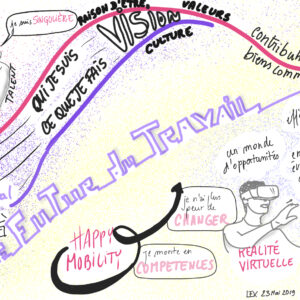 je suis SINGULIÈRE
RAISON D'ÊTRE
VALEURS
VISION
CULTURE
TALENT
QUI JE SUIS
CE QUE JE FAIS
contribut
biens comm
FUTUR du TRAVAIL
un monde
d'opportunités
je n'ai plus
peur de
CHANGER
HAPPY
MOBILITY
je monte en
COMPETENCES
RÉALITÉ
VIRTUELLE
LEX 23 Mai 2019